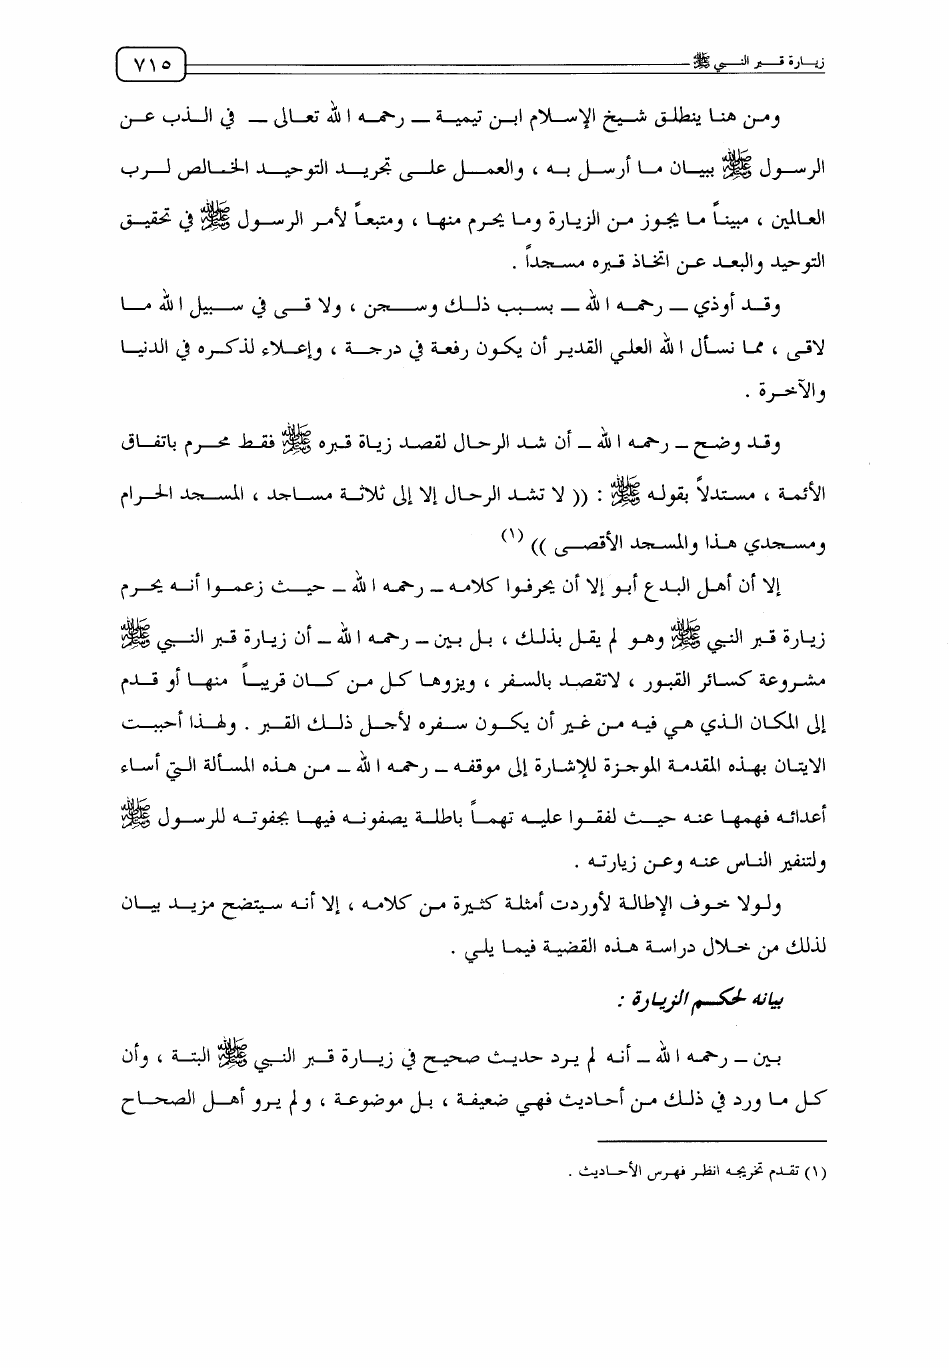 زيارة قبر النبي ﷺ ٧١٥
ومن هنا ينطلق شيخ الإسلام ابن تيمية – رحمه الله تعالى – في الذب عن
الرسول ﷺ ببيان ما أرسل به ، والعمل على تجريد التوحيد الخالص لرب
العالمين ، مبيناً ما يجوز من الزيارة وما يحرم منها ، ومتبعاً لأمر الرسول ﷺ في تحقيق
التوحيد والبعد عن اتخاذ قبره مسجداً .
وقد أوذي – رحمه الله – بسبب ذلك وسجن ، ولا قى في سبيل الله ما
لاقى ، مما نسأل الله العلي القدير أن يكون رفعة في درجة ، وإعلاء لذكره في الدنيا
والآخرة .
وقد وضح – رحمه الله – أن شد الرحال لقصد زياة قبره ﷺ فقط محرم باتفاق
الأئمة ، مستدلاً بقوله ﷺ : (( لا تشد الرحال إلا إلى ثلاثة مساجد ، المسجد الحرام
ومسجدي هذا والمسجد الأقصى )) (١)
إلا أن أهل البدع أبو إلا أن يحرفوا كلامه – رحمه الله – حيث زعموا أنه يحرم
زيارة قبر النبي ﷺ وهو لم يقل بذلك ، بل بين – رحمه الله – أن زيارة قبر النبي ﷺ
مشروعة كسائر القبور ، لاتقصد بالسفر ، ويزوها كل من كان قريباً منها أو قدم
إلى المكان الذي هي فيه من غير أن يكون سفره لأجل ذلك القبر . ولهذا أحببت
الايتان بهذه المقدمة الموجزة للإشارة إلى موقفه – رحمه الله – من هذه المسألة التي أساء
أعدائه فهمها عنه حيث لفقوا عليه تهماً باطلة يصفونه فيها بجفوته للرسول ﷺ
ولتنفير الناس عنه وعن زيارته .
ولولا خوف الإطالة لأوردت أمثلة كثيرة من كلامه ، إلا أنه سيتضح مزيد بيان
لذلك من خلال دراسة هذه القضية فيما يلي .
بيانه لحكم الزيارة :
بين – رحمه الله – أنه لم يرد حديث صحيح في زيارة قبر النبي ﷺ البتة ، وأن
كل ما ورد في ذلك من أحاديث فهي ضعيفة ، بل موضوعة ، ولم يرو أهل الصحاح
(١) تقدم تخريجه انظر فهرس الأحاديث .